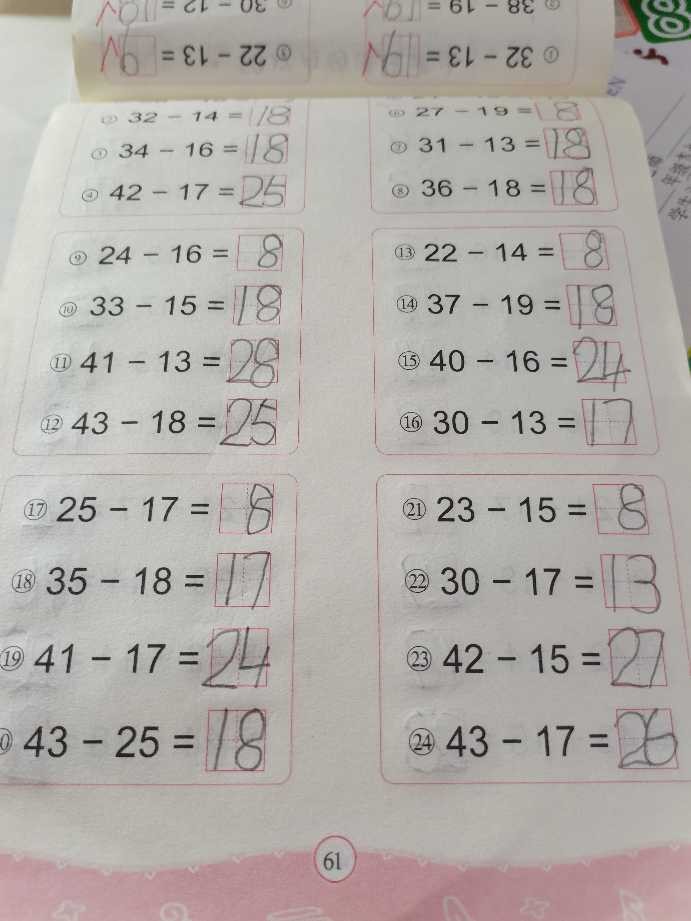 ② 30 − 12 =
⑥ 38 − 19 =
① 32 − 13 =
⑤ 22 − 13 = 9
② 32 − 14 = 18
⑥ 27 − 19 = 8
③ 34 − 16 = 18
⑦ 31 − 13 = 18
④ 42 − 17 = 25
⑧ 36 − 18 = 18
⑨ 24 − 16 = 8
⑬ 22 − 14 = 8
⑩ 33 − 15 = 18
⑭ 37 − 19 = 18
⑪ 41 − 13 = 28
⑮ 40 − 16 = 24
⑫ 43 − 18 = 25
⑯ 30 − 13 = 17
⑰ 25 − 17 = 8
㉑ 23 − 15 = 8
⑱ 35 − 18 = 17
㉒ 30 − 17 = 13
⑲ 41 − 17 = 24
㉓ 42 − 15 = 27
43 − 25 = 18
㉔ 43 − 17 = 26
61